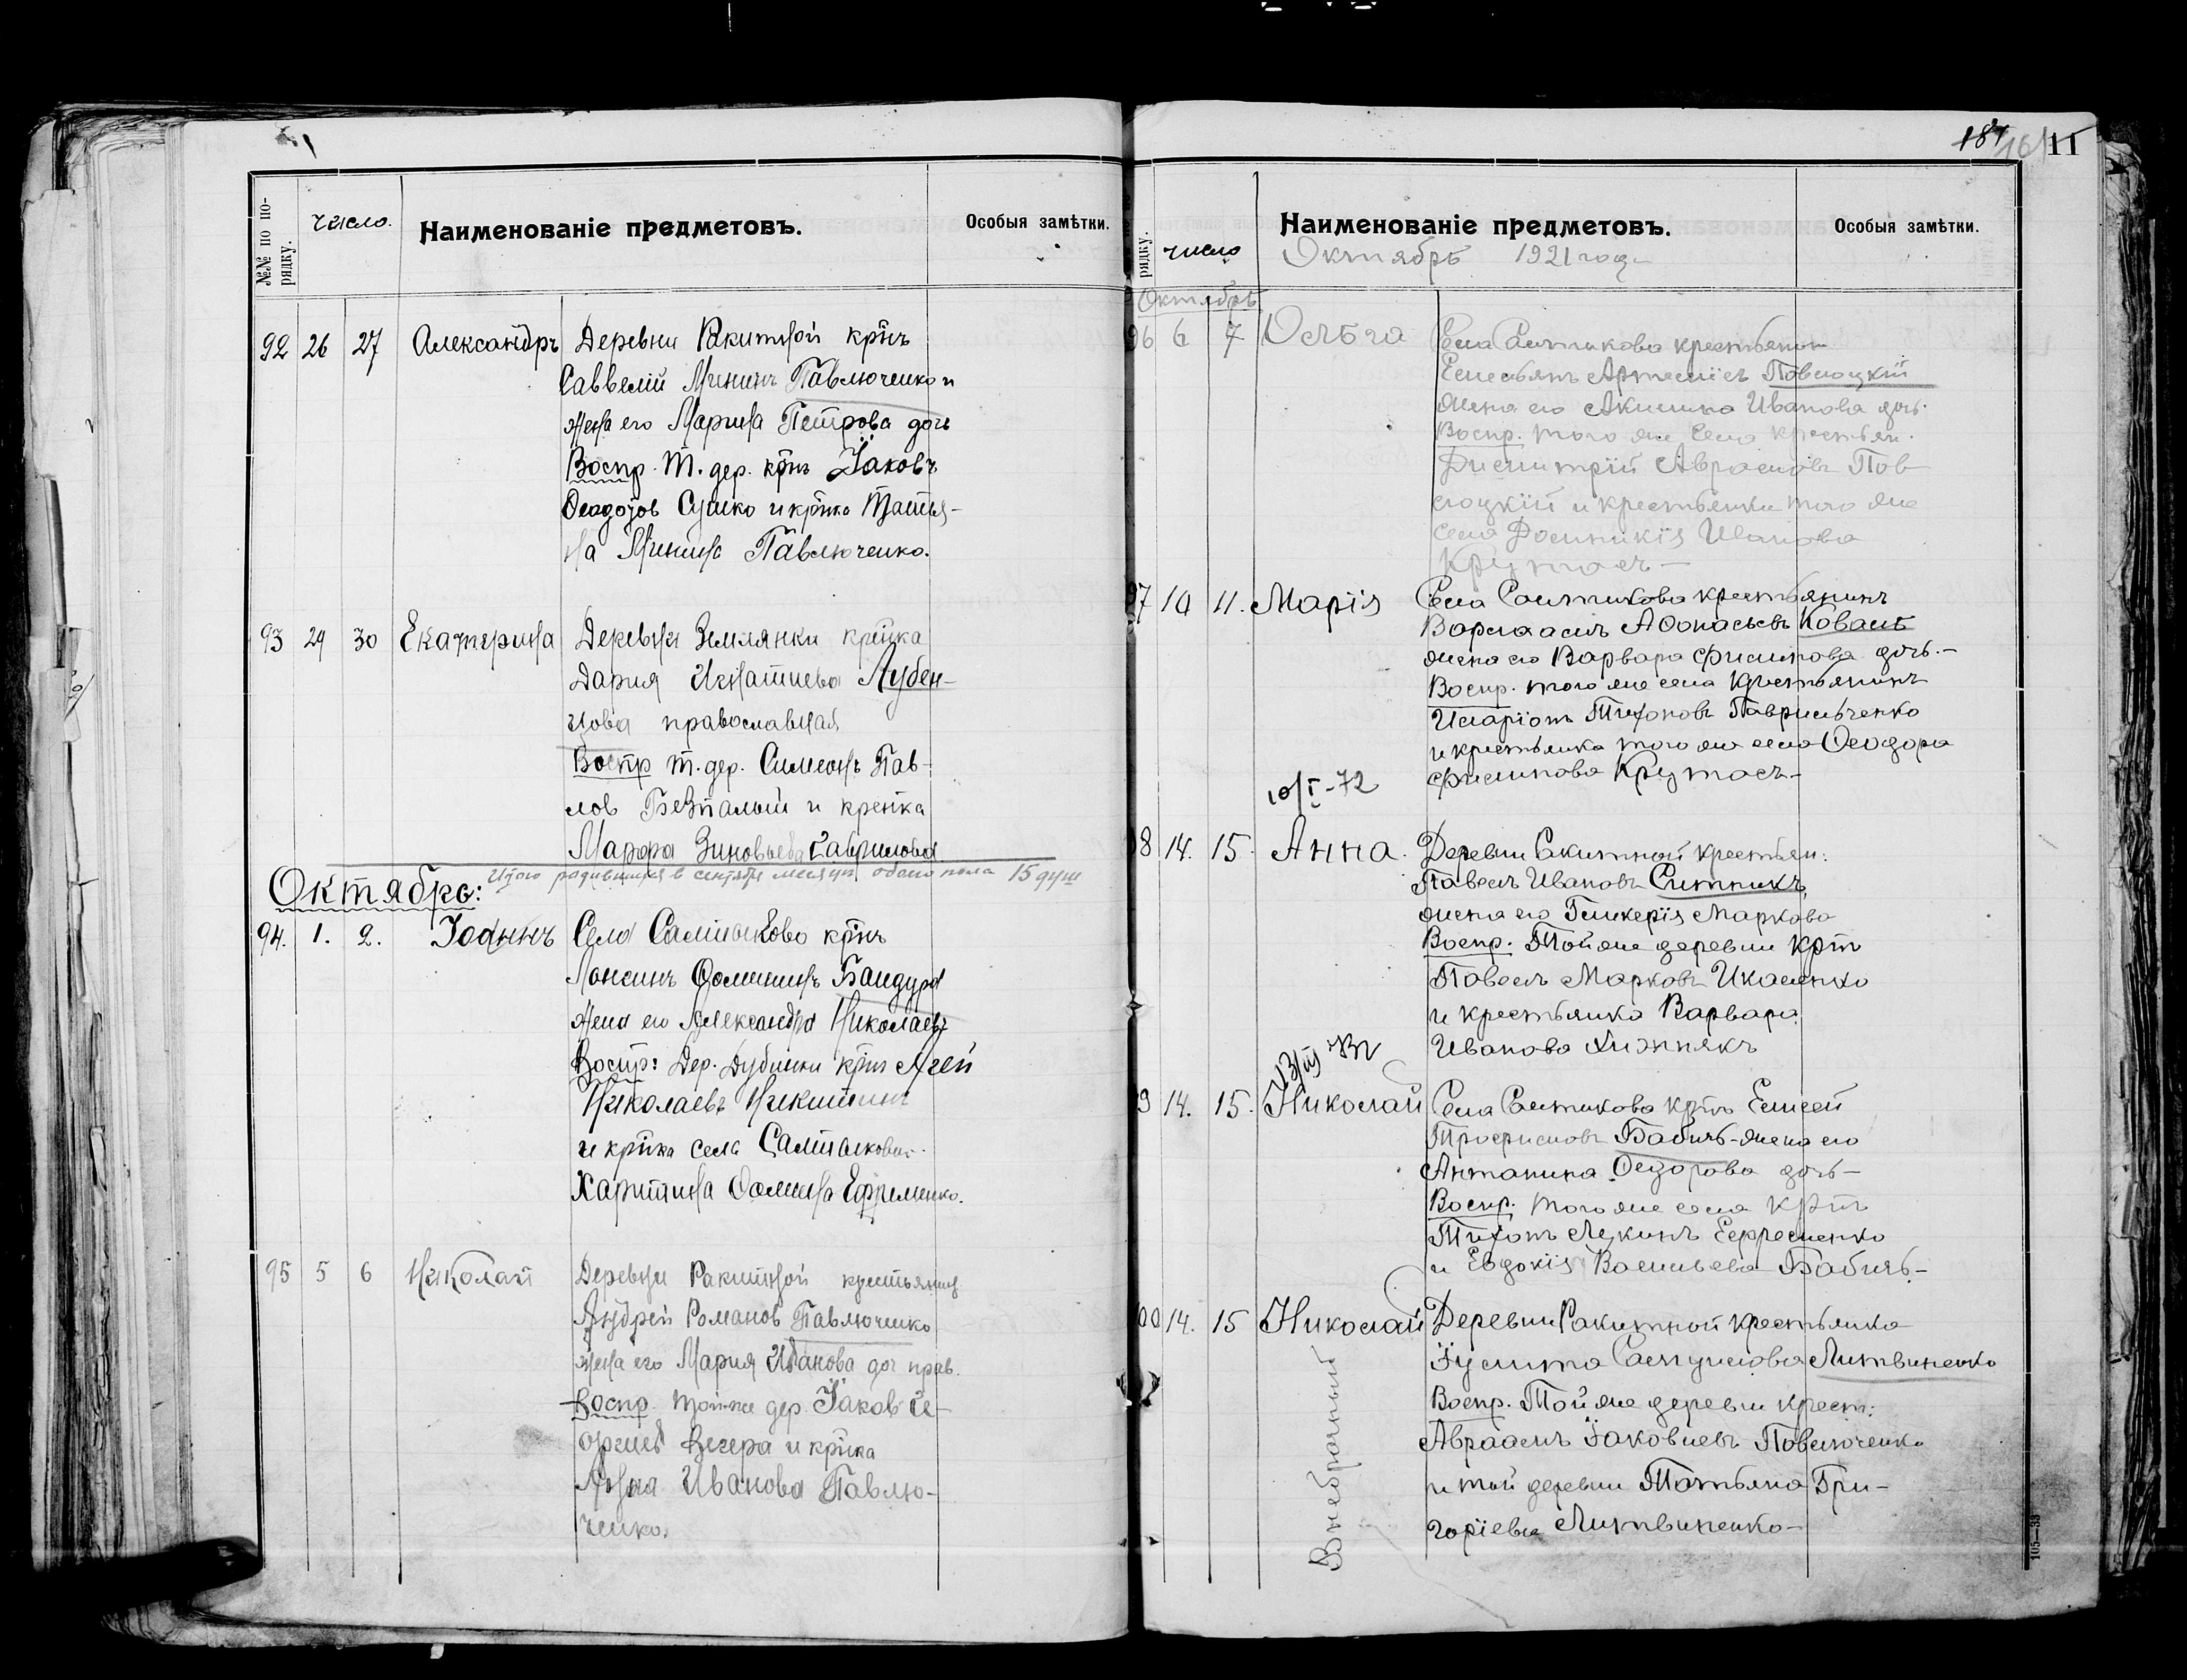 №№ по порядку.
число.
Наименованіе предметовъ.
Особыя замѣтки.
92 26 27 Александръ Деревни Ракитной крнъ
Саввелій Мининъ Павлюченко и
жена его Марина Петрова дочь
Воспр. т. дер. крнъ Іаковъ
Сушко и крнка Татья-
на Минина Павлюченко.
93 29 30 Екатерина Деревни Землянки крешка
Дария Игнатиева Лубен-
цова православная
Воспр т. дер. Симеонъ Пав-
лов Безпалый и кренка
Марфа Зиновьева Гаврилова
Итого родившихся в сентябре месяце обоего пола 15 душ
Октябрь:
94. 1. 2. Іоаннъ Села Салтыково крнъ
Лонгинъ Ѳомининъ Бандура
жена его Александра Николаев
Воспр: Дер. Дубинки крнъ Агей
Николаевъ Никитинъ
и крнка села Салтыкова
Харитина Ѳомина Ефременко.
95 5 6 Николай Деревни Ракитной крестьянин
Андрей Романов Павлюченко
жена его Мария Иванова доч прав.
Воспр. той-же дер. Іаков Ге-
оргиев Вечера и крнка
Анна Иванова Павлю-
ченко.
187 11
рядку.
число
Наименованіе предметовъ.
Особыя замѣтки.
Октябрь 1921 года
Октябрь
96 6 7 Ольга Села Салтикова крестьянин
Емельянъ Артемііевъ Повлоцкій
жена его Акилина Иванова дочь.
Воспр. того же села крестьян.
Дмитрій Аврамовъ Пов-
лоцкій и крестьянки того же
села Домникія Иванова
97 10 11. Марія Села Салтикова крестьянинъ
Варлаамъ Аѳонасьевъ Коваль
жена его Варвара Филипова дочь.-
Воспр. того же села крестьянинъ
Иларіонъ Тихоновъ Гаврильченко
и крестьянка того же села Ѳеодора
Филипова
10/I-72
8 14. 15. Анна. Деревни Ракитной крестьян:
Павелъ Ивановъ Ситникъ
жена его Гликерія Маркова
Воспр. Той же деревни крт
Павелъ Марковъ Икаленко
и крестьянка Варвара
Иванова Хижнякъ
9 14. 15. Николай Села Салтикова крт Елисей
Трофимовъ Бабичъ-жена его
Антонина Ѳедорова дочь-
Воспр. того же села крт
Тихонъ Лукинъ Еефременко
и Евдокія Васильева Бабичъ-
00 14. 15 Николай Деревни Ракитной крестьянка
Іулита Литвиненко
Воспр. Той же деревни крест:
Авраамъ Іаковлевъ Повлюченко
и той деревни Татьяна Гри-
горіева Литвиненко-
Внебрачный
105—33